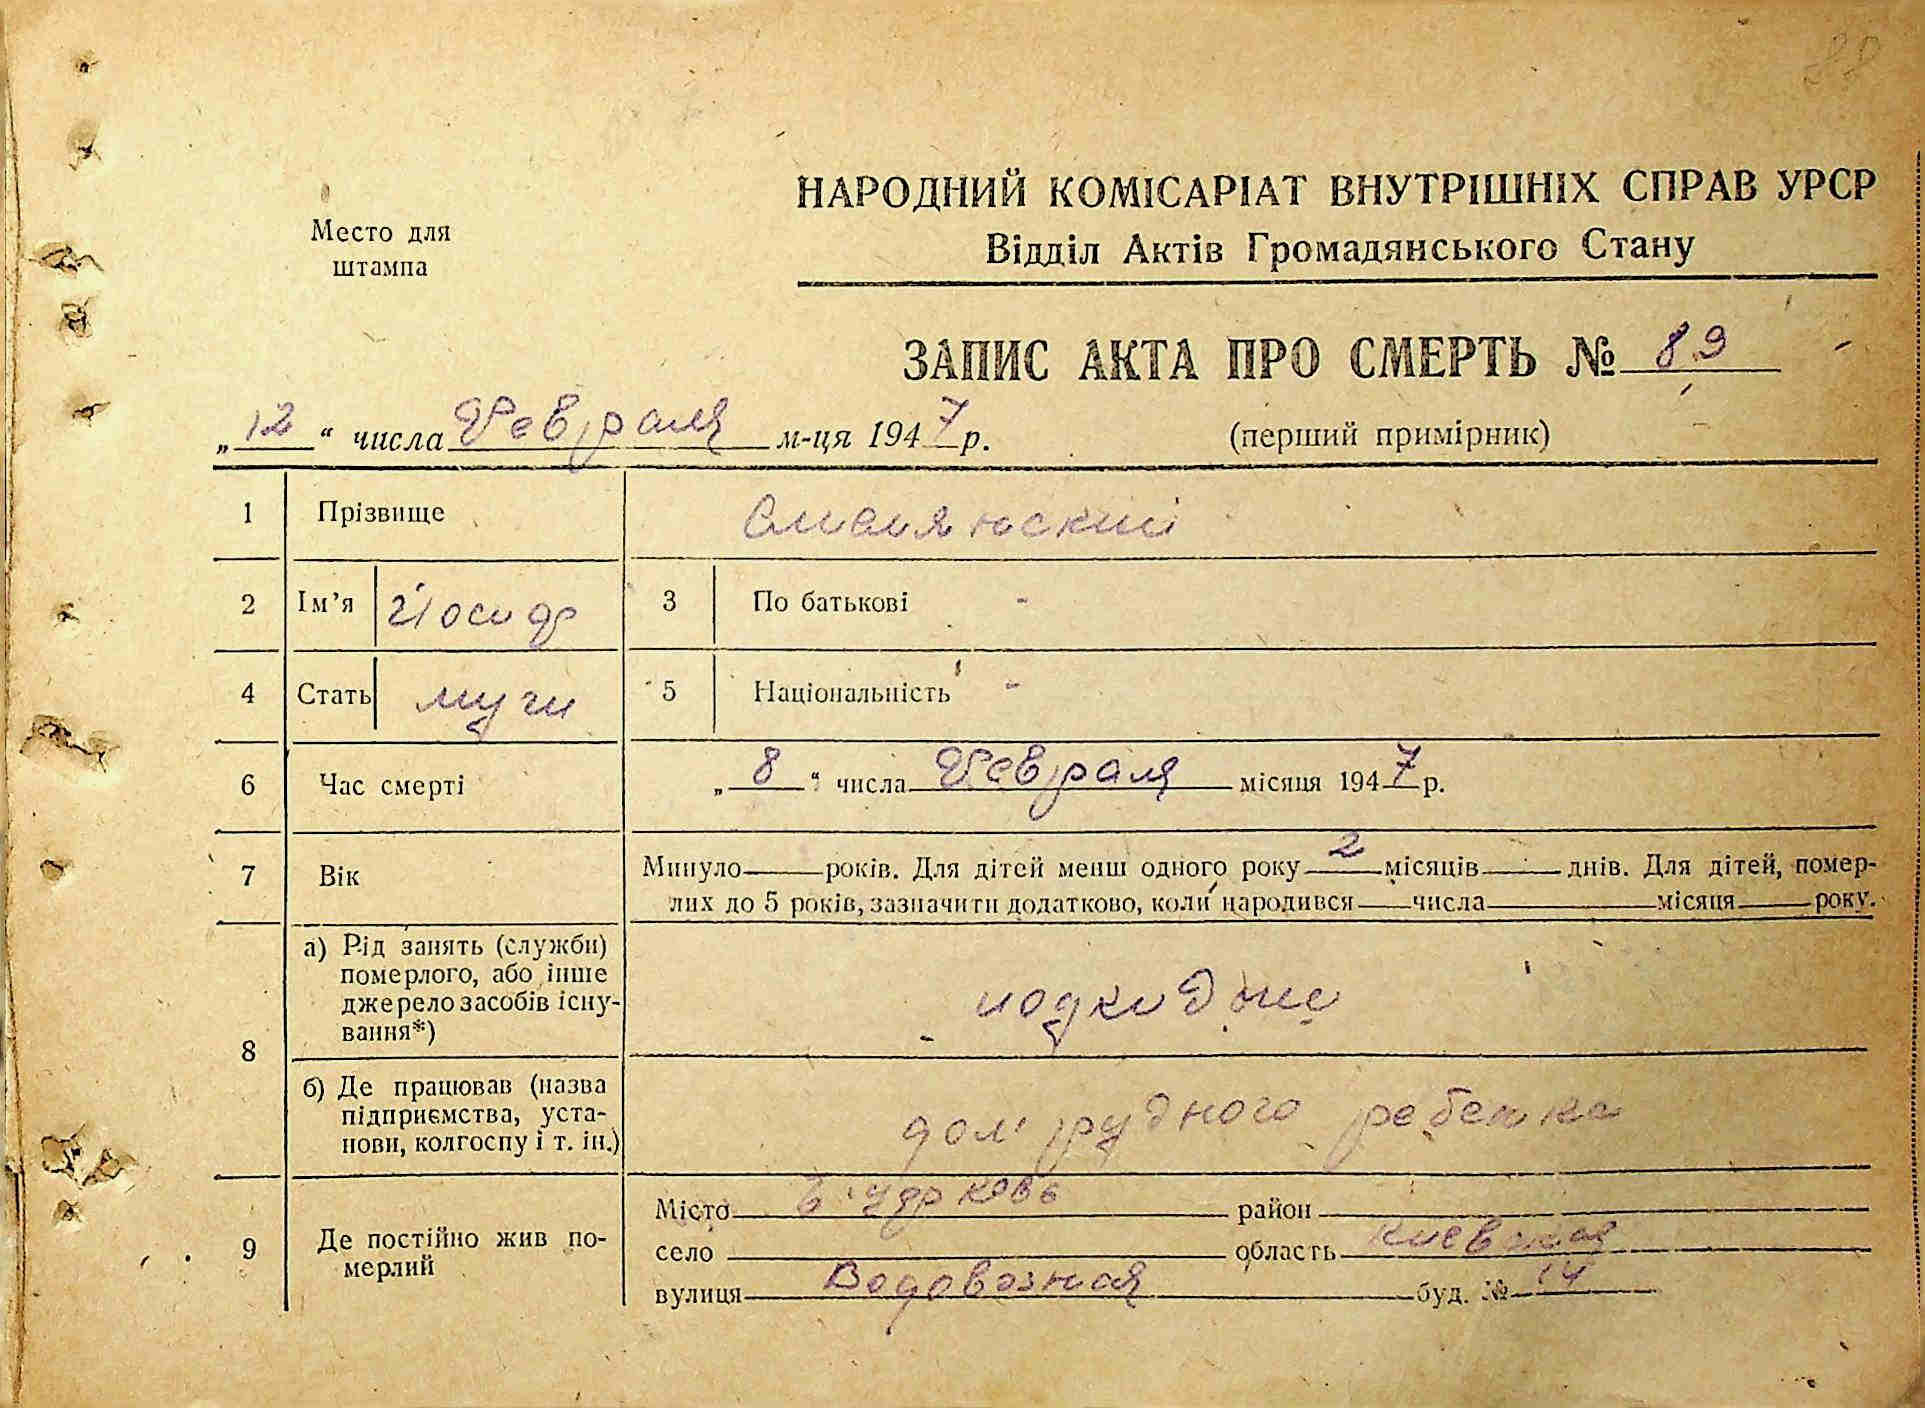 Место для
штампа
НАРОДНИЙ КОМІСАРІАТ ВНУТРІШНІХ СПРАВ УРСР
Відділ Актів Громадянського Стану
ЗАПИС АКТА ПРО СМЕРТЬ № 89
„12“ числа Февраля м-ця 1947 р. (перший примірник)
1 Прізвище
2 Ім’я Йосиф 3 По батькові -
4 Стать муж 5 Національність -
6 Час смерті „8“ числа Февраля місяця 1947 р.
7 Вік Минуло років. Для дітей менш одного року 2 місяців днів. Для дітей, помер-
лих до 5 років, зазначити додатково, коли народився числа місяця року.
8 а) Рід занять (служби)
померлого, або інше
джерело засобів існу-
вання*)
подкидыш
б) Де працював (назва
підприємства, уста-
нови, колгоспу і т. ін.)
дом грудного ребенка
9 Де постійно жив по-
мерлий
Місто Б. Церковь район
село область Киевская
вулиця Водовозная буд. № 14